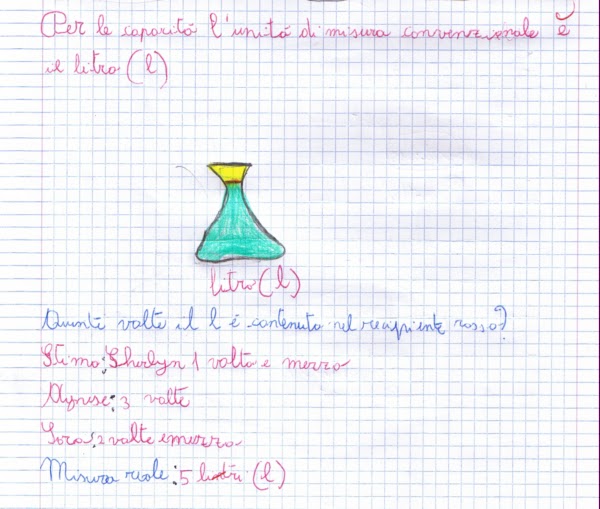 Per le capacità l'unità di misura convenzionale è
il litro (l)
litro (l)
Quante volte il l è contenuto nel recipiente rosso?
Stima: Sherlyn 1 volta e mezzo
3 volte
Sara: 2 volte e mezzo
Misura reale: 5 litri (l)